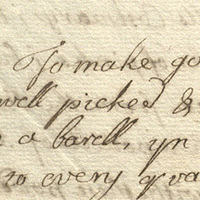 To make go
well picked &
a barell, yn
to every qua